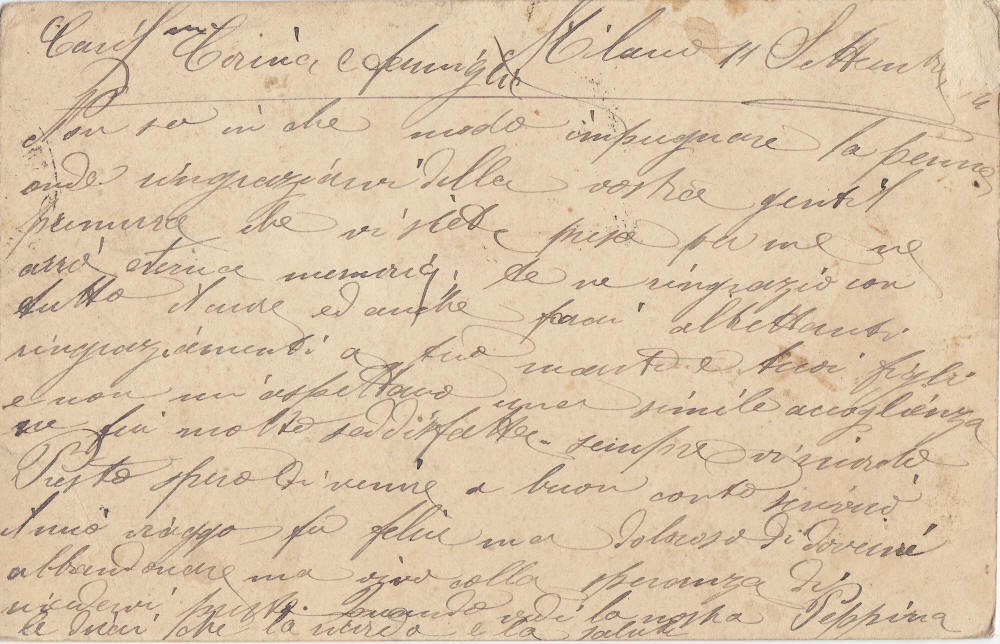 Cariss.ma Corina e famiglia Milano 11 Settembre
Non so in che modo impugnare la penna
onde ringraziarvi della vostra gentil
premura che vi siete preso per me ne
avrò eterna memoria, te ne ringrazio con
tutto il cuore ed anche farai altrettanti
ringraziamenti a tuo marito e tuoi figli
e non m'aspettavo una simile accoglienza
ne fui molto soddisfatta sempre vi ricordo
Presto spero di venire a buon conto
il mio viaggo fu felice ma doloroso di dovervi
abbandonare ma vivo colla speranza di
rivedervi presto quando vedi la nostra Peppina
le dirai che la ricordo e la saluti